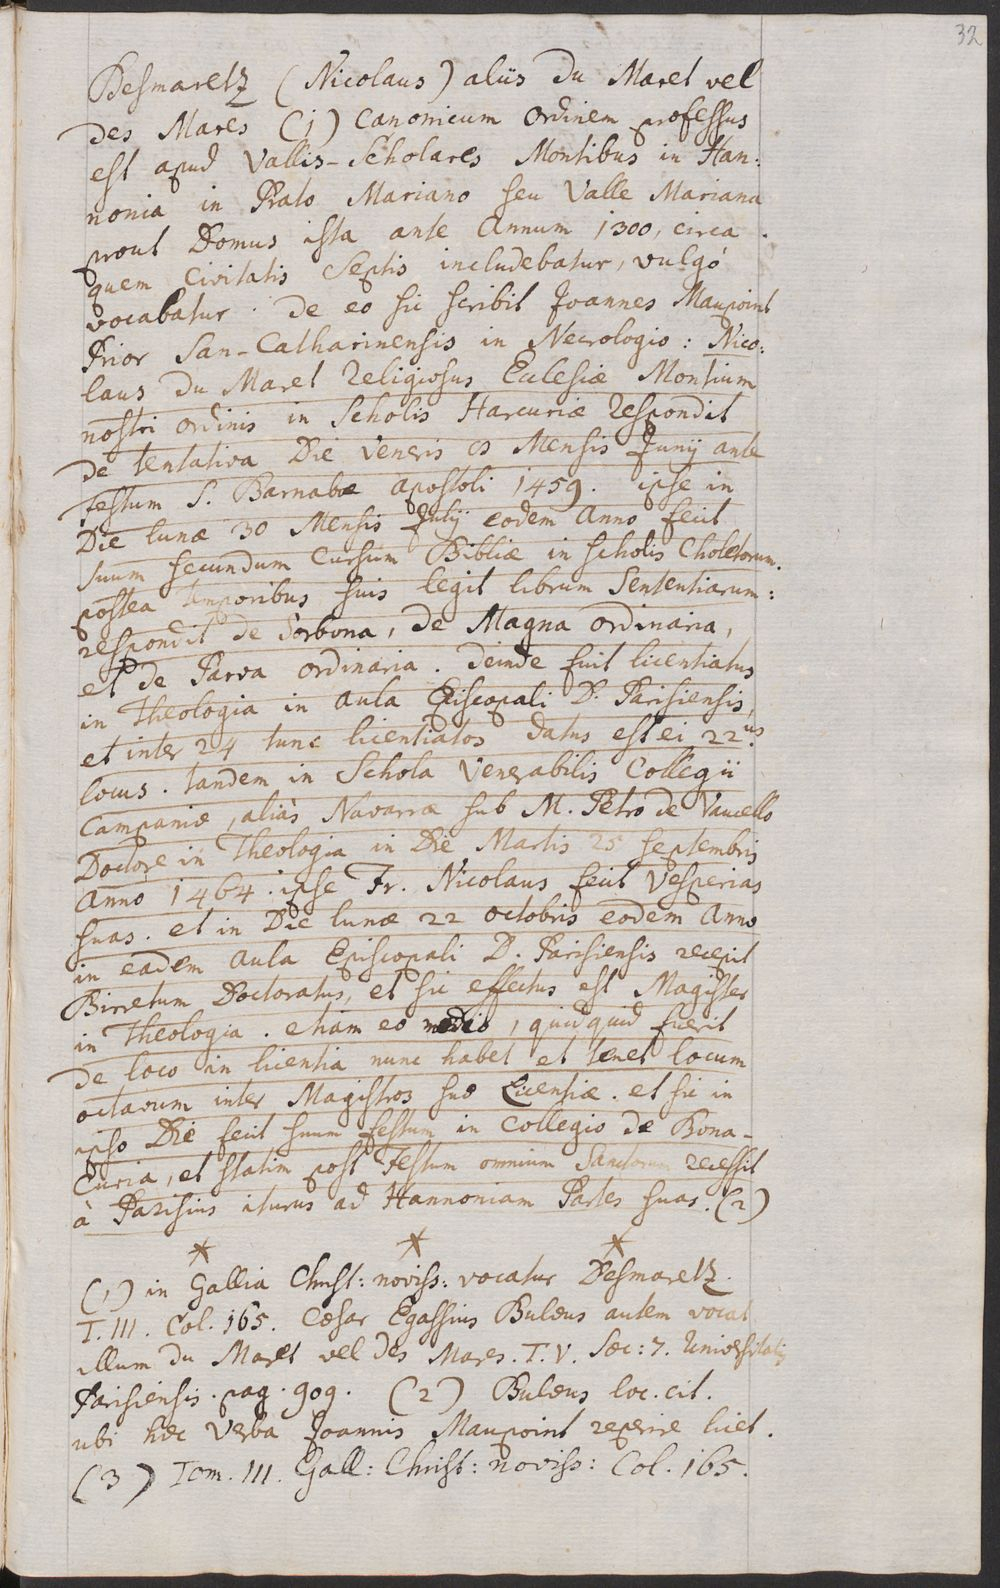 32
Desmaretz (Nicolaus) aliis du Maret vel
des Mares (1) Canonicum Ordinem professus
est apud Vallis-Scholares Montibus in Han:
nonia in Prato Mariano seu Valle Mariana
prout Domus ista ante Annum 1300, circa
quem Civitatis Septis includebatur, vulgò
vocabatur. de eo sic scribit Joannes Maupoint
Prior San-Catharinensis in Necrologio: Nico:
laus du Maret Religiosus Ecclesiæ Montium
nostri ordinis in Scholis Harcuriæ Respondit
de tentativa Die Veneris 8 Mensis Junij ante
festum S. Barnabæ Apostoli 1459. ipse in
Die lunæ 30 Mensis Julij eodem Anno fecit
suum secundum Cursum Bibliæ in scholis Choletorum.
postea temporibus suis legit librum Sententiarum:
respondit de Sorbona, de Magna ordinaria,
et de Parva ordinaria. deinde fuit licentiatus
in Theologia in aula Episcopali D. Parisiensis,
et inter 24 tunc licentiatos datus est ei 22.us
locus. tandem in Schola Venerabilis Collegii
Campaniæ, aliàs Navarræ sub M. Petro de Vaucello
Doctore in Theologia in Die Martis 25 septembris
Anno 1464. ipse Fr. Nicolaus fecit Vesperias
suas. et in Die lunæ 22 octobris eodem Anno
in eadem aula Episcopali D. Parisiensis recepit
Birretum Doctoratus, et sic effectus est Magister
in Theologia. etiam eo medio, quidquid fuerit
de loco in licentia nunc habet et tenet locum
octavum inter Magistros suæ Licentiæ. et sic in
ipso Die fecit suum festum in Collegio de Bona-
Curia, et statim post Festum omnium Sanctorum recessit
à Parisius iturus ad Hannoniam Partes suas. (2)
* * *
(1) in Gallia Christ: noviss: vocatur Desmaretz.
T. III. Col. 165. Cæsar Egassius Bulæus autem vocat
illum du Maret vel des Mares. T. V. Sæc: 7. Universitatis
Parisiensis. pag. 909. (2) Bulæus loc. cit.
ubi hæc Verba Joannis Maupoint reperire licet.
(3) Tom. III. Gall: Christ: noviss: Col. 165.